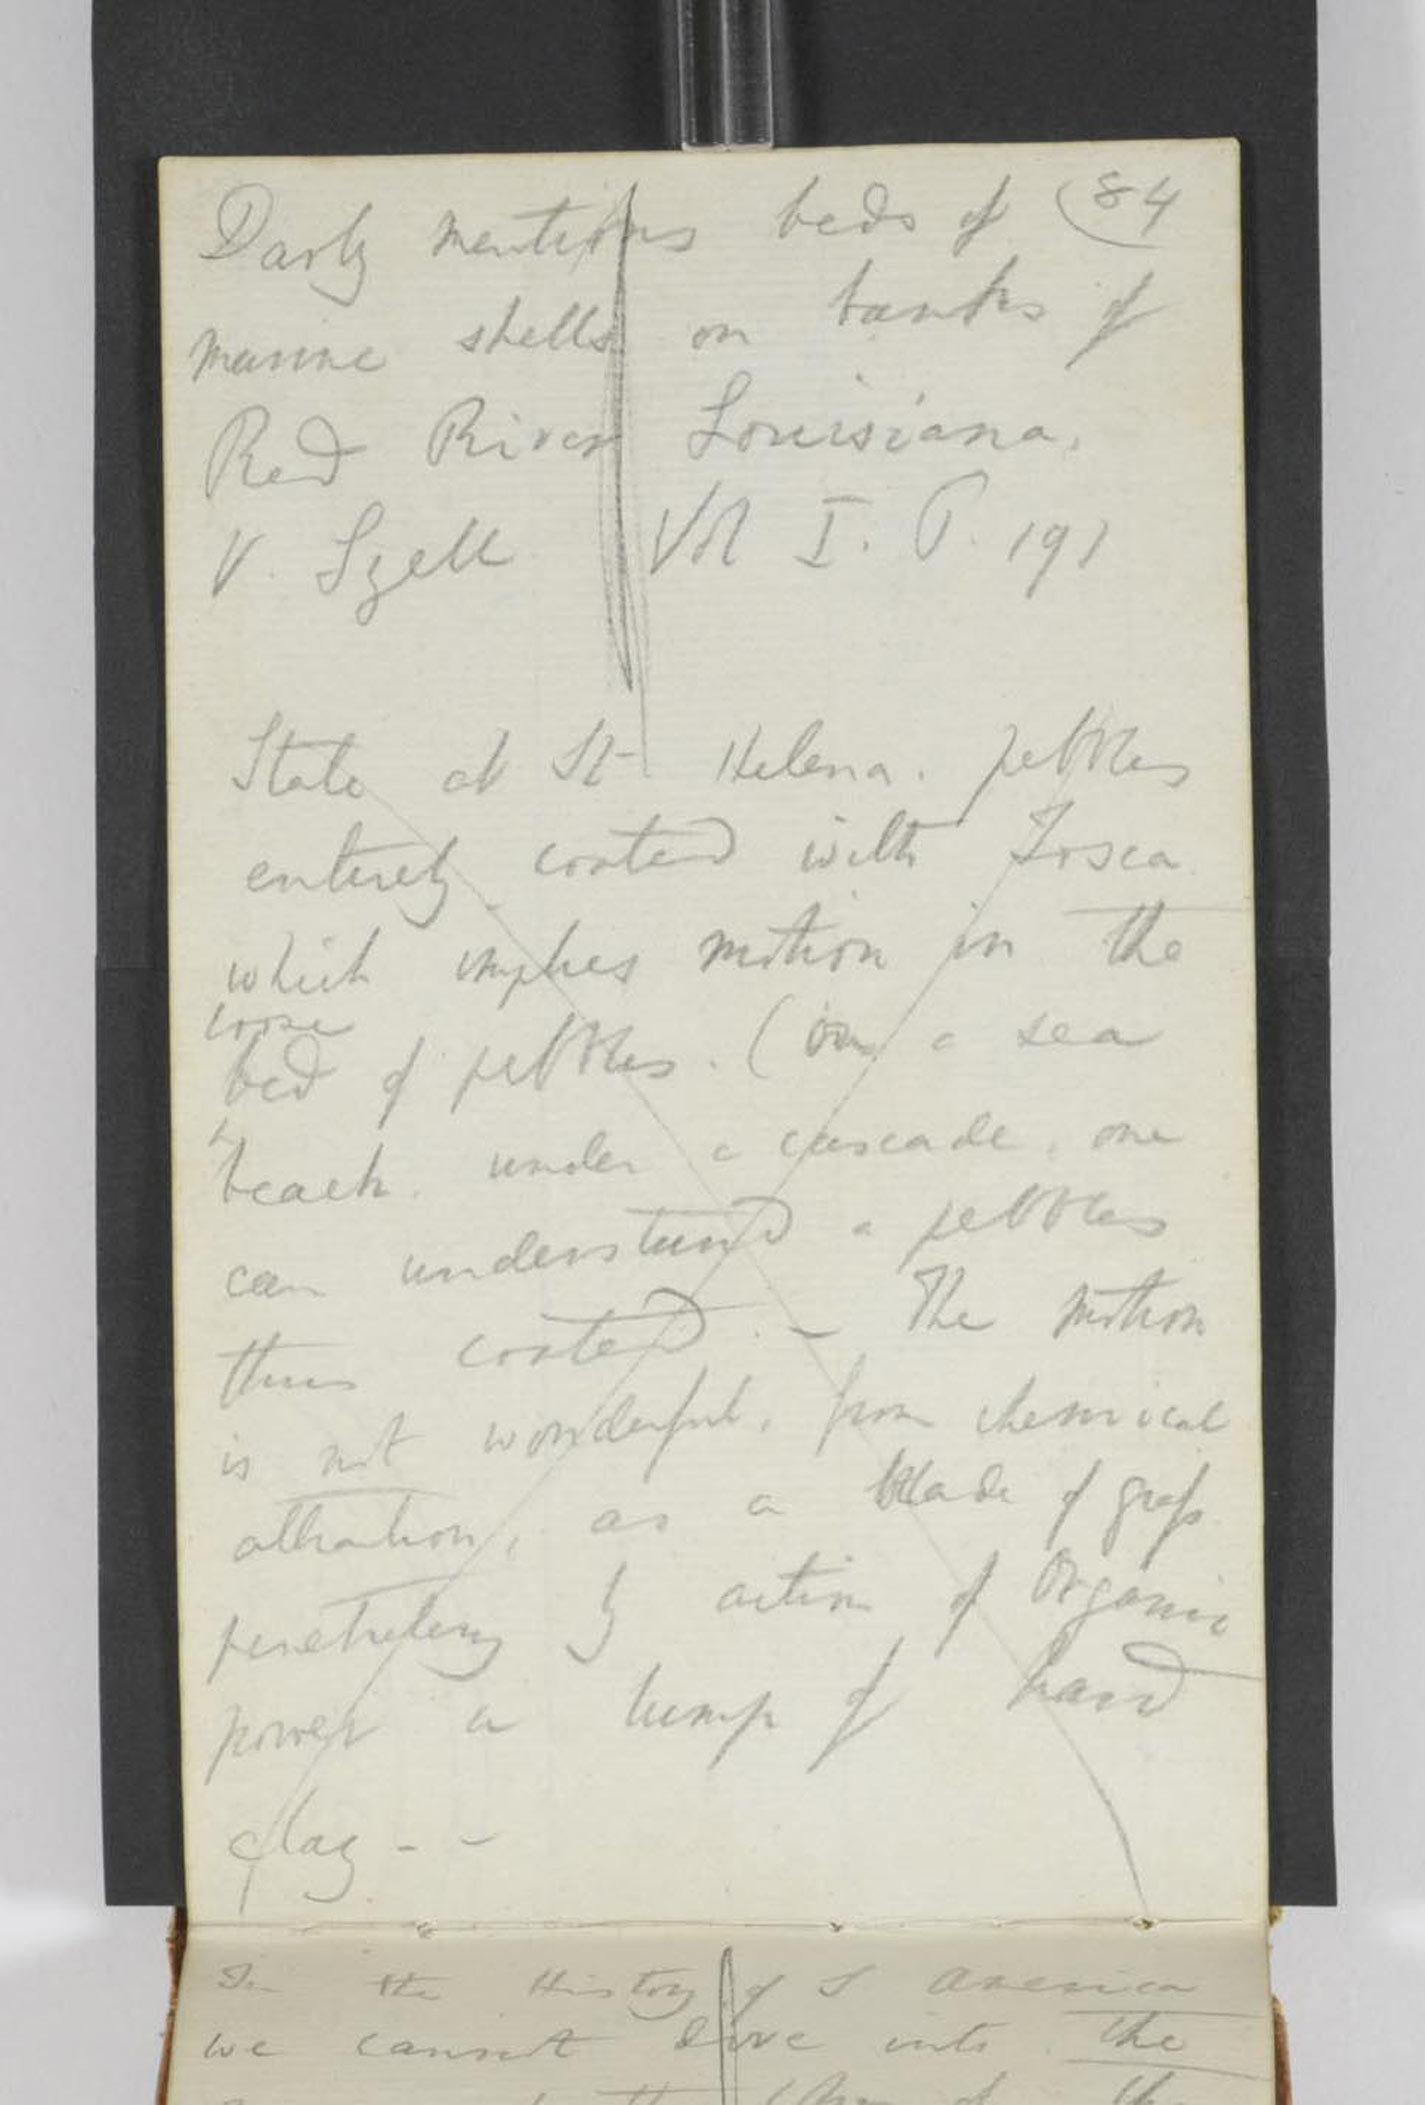 Darby mentions beds of (84
marine shells on banks of
Red River Louisiana.
V. Lyell Vol I. P. 191
State at St Helena. pebbles
entirely coated with Tosca
which implies motion in the
loose
bed of pebbles. (on a sea
beach. under a cascade, one
can understand a pebbles
thus coated. — The motion
is not wonderful, from chemical
attraction, as a blade of grass
penetrating by action of organic
power a lump of hard
clay - -
In the History of S America
we cannot dive into the